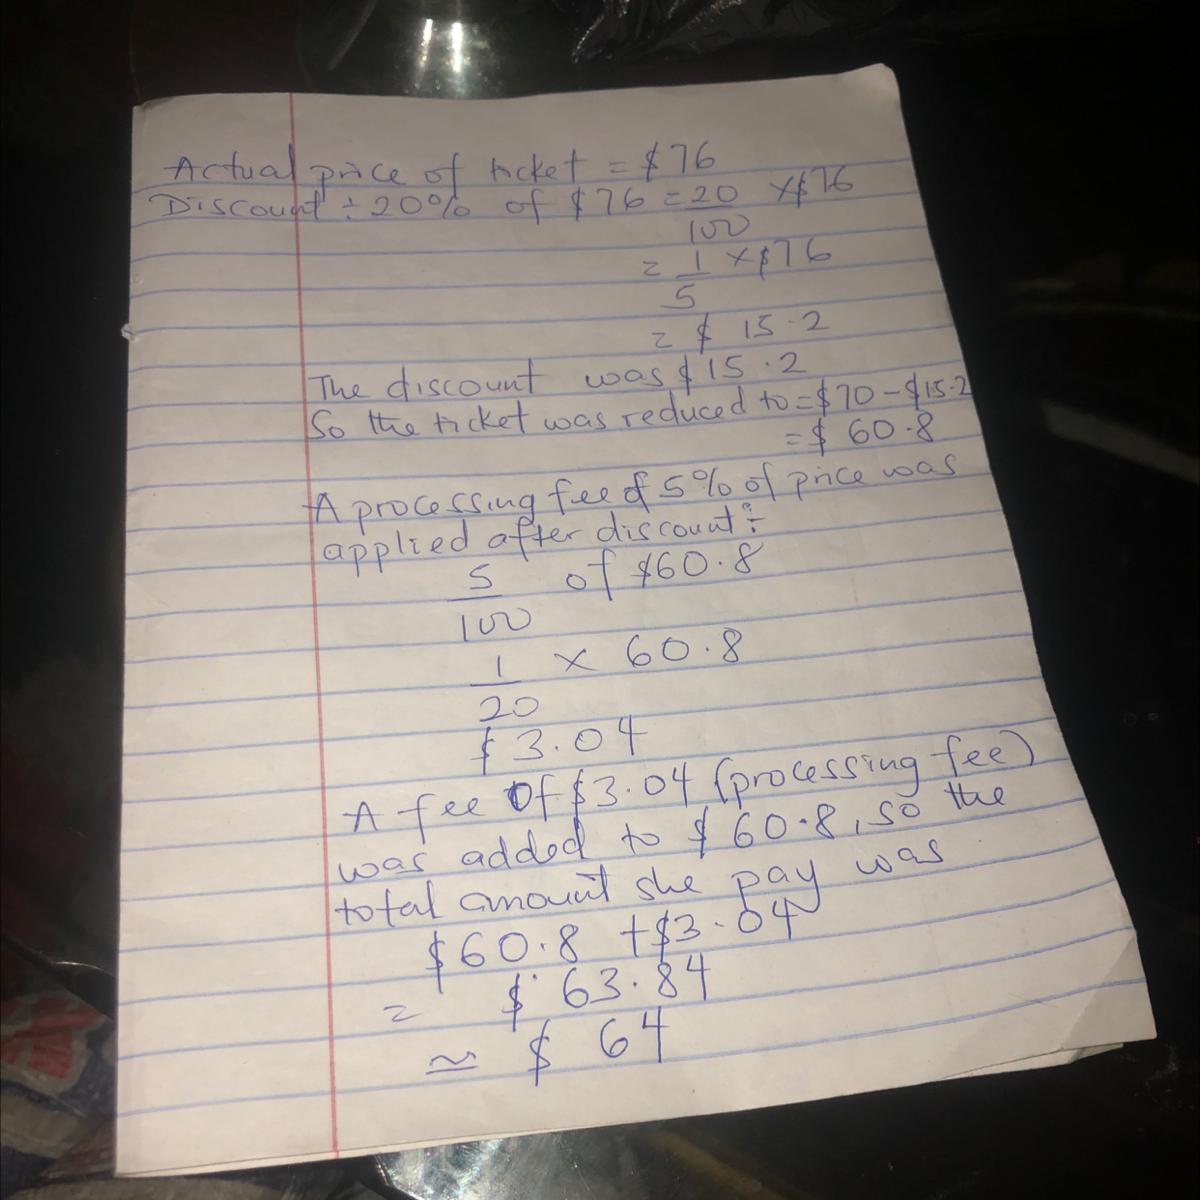 Actual price of ticket = $76
Discount ÷ 20% of $76 = 20 × $76
100
= 1 × $76
5
= $ 15.2
The discount was $15.2
So the ticket was reduced to = $70 - $15.2
= $ 60.8
A processing fee of 5% of price was
applied after discount :-
5 of $60.8
100
1 × 60.8
20
$3.04
A fee of $3.04 (processing fee)
was added to $60.8, so the
total amount she pay was
$60.8 + $3.04
= $ 63.84
≃ $ 64